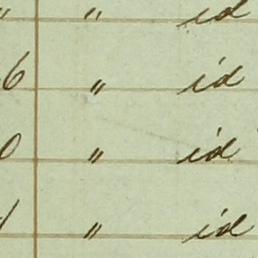 " " id
6 " id
0 " id
1 " id